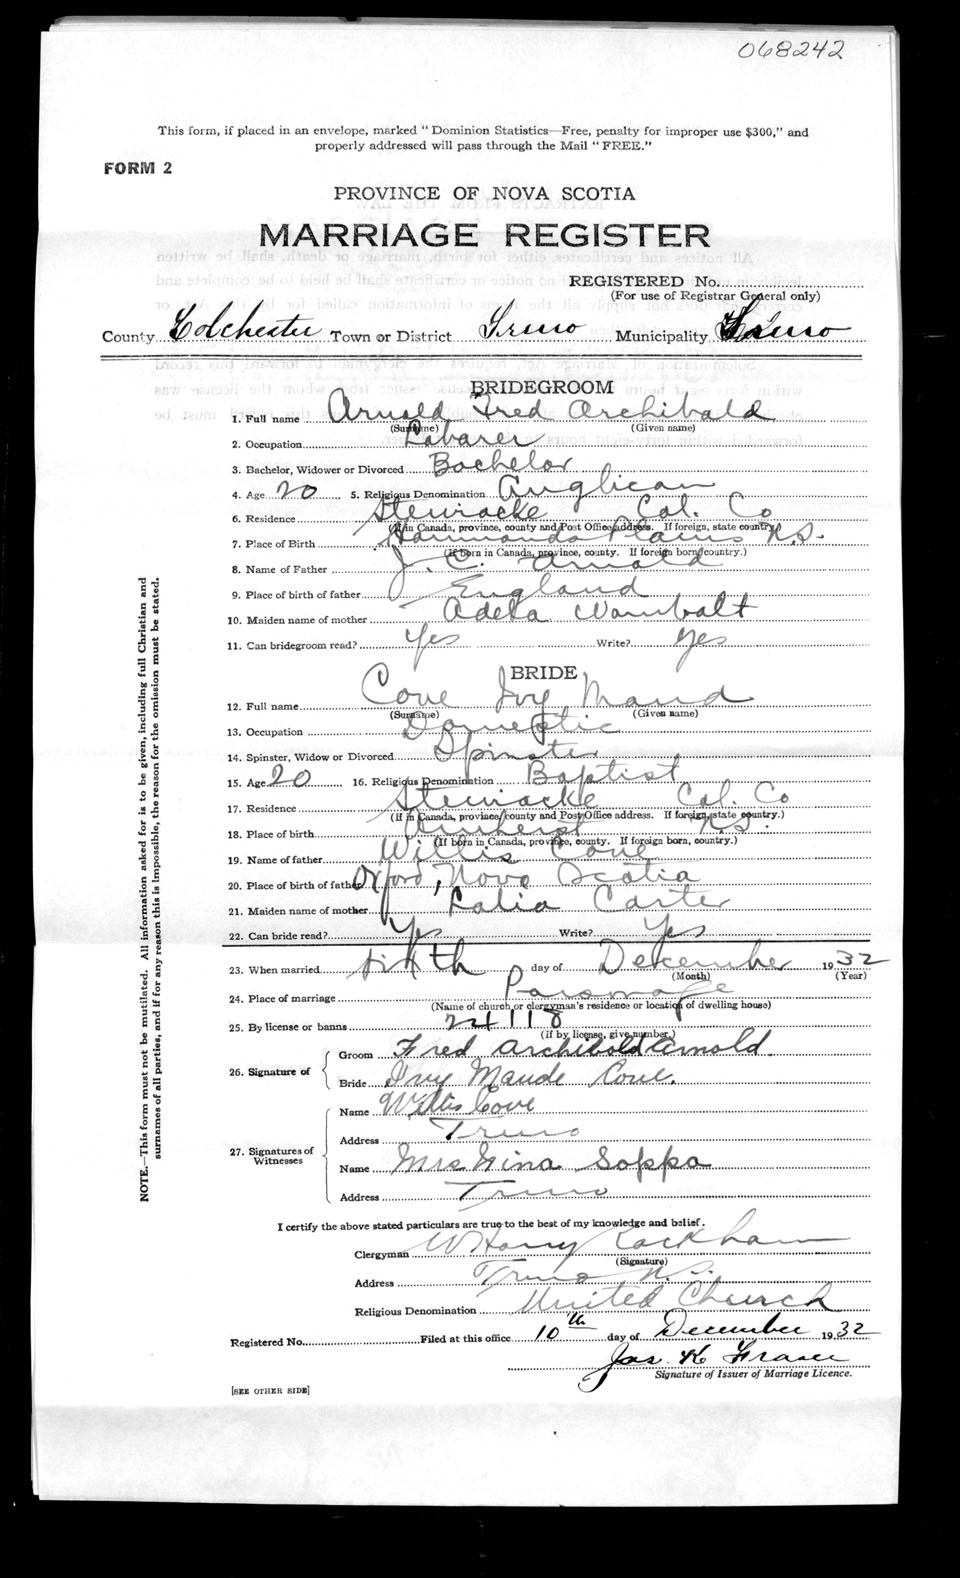 068242
This form, if placed in an envelope, marked "Dominion Statistics—Free, penalty for improper use $300," and
properly addressed will pass through the Mail "FREE."
FORM 2
PROVINCE OF NOVA SCOTIA
MARRIAGE REGISTER
REGISTERED No.
(For use of Registrar General only)
County Colchester Town or District Truro Municipality Truro
BRIDEGROOM
1. Full name Arnold Fred Archibald
(Surname) (Given name)
2. Occupation Labarer
3. Bachelor, Widower or Divorced Bachelor
4. Age 20 5. Religious Denomination Anglican
6. Residence Stewiacke Col. Co
(If in Canada, province, county and Post Office address. If foreign, state country.)
7. Place of Birth Hammonds Plains N.S.
(If born in Canada, province, county. If foreign born, country.)
8. Name of Father J. C. Arnold
9. Place of birth of father England
10. Maiden name of mother Adela Wambolt
11. Can bridegroom read? Yes Write? Yes
BRIDE
12. Full name Cove Ivy Maud
(Surname) (Given name)
13. Occupation Domestic
14. Spinster, Widow or Divorced Spinster
15. Age 20 16. Religious Denomination Baptist
17. Residence Stewiacke Col. Co
(If in Canada, province, county and Post Office address. If foreign, state country.)
18. Place of birth Amherst N.S.
(If born in Canada, province, county. If foreign born, country.)
19. Name of father Willis Cove
20. Place of birth of father Oxford, Nova Scotia
21. Maiden name of mother Lalia Carter
22. Can bride read? Yes Write? Yes
23. When married sixth day of December 1932
(Month) (Year)
24. Place of marriage Parsonage
(Name of church or clergyman's residence or location of dwelling house)
25. By license or banns 24118
(If by license, give number.)
26. Signature of
Groom Fred Archibold Arnold.
Bride Ivy Maude Cove.
27. Signatures of Witnesses
Name Willis Cove
Address Truro
Name Mrs Nina Soppa
Address Truro
I certify the above stated particulars are true to the best of my knowledge and belief.
Clergyman W Harry Rackham
(Signature)
Address Truro N.S.
Religious Denomination United Church
Registered No. Filed at this office 10th day of December 1932
Jas. K Fraser
Signature of Issuer of Marriage Licence.
[SEE OTHER SIDE]
NOTE.—This form must not be mutilated. All information asked for is to be given, including full Christian and
surnames of all parties, and if for any reason this is impossible, the reason for the omission must be stated.